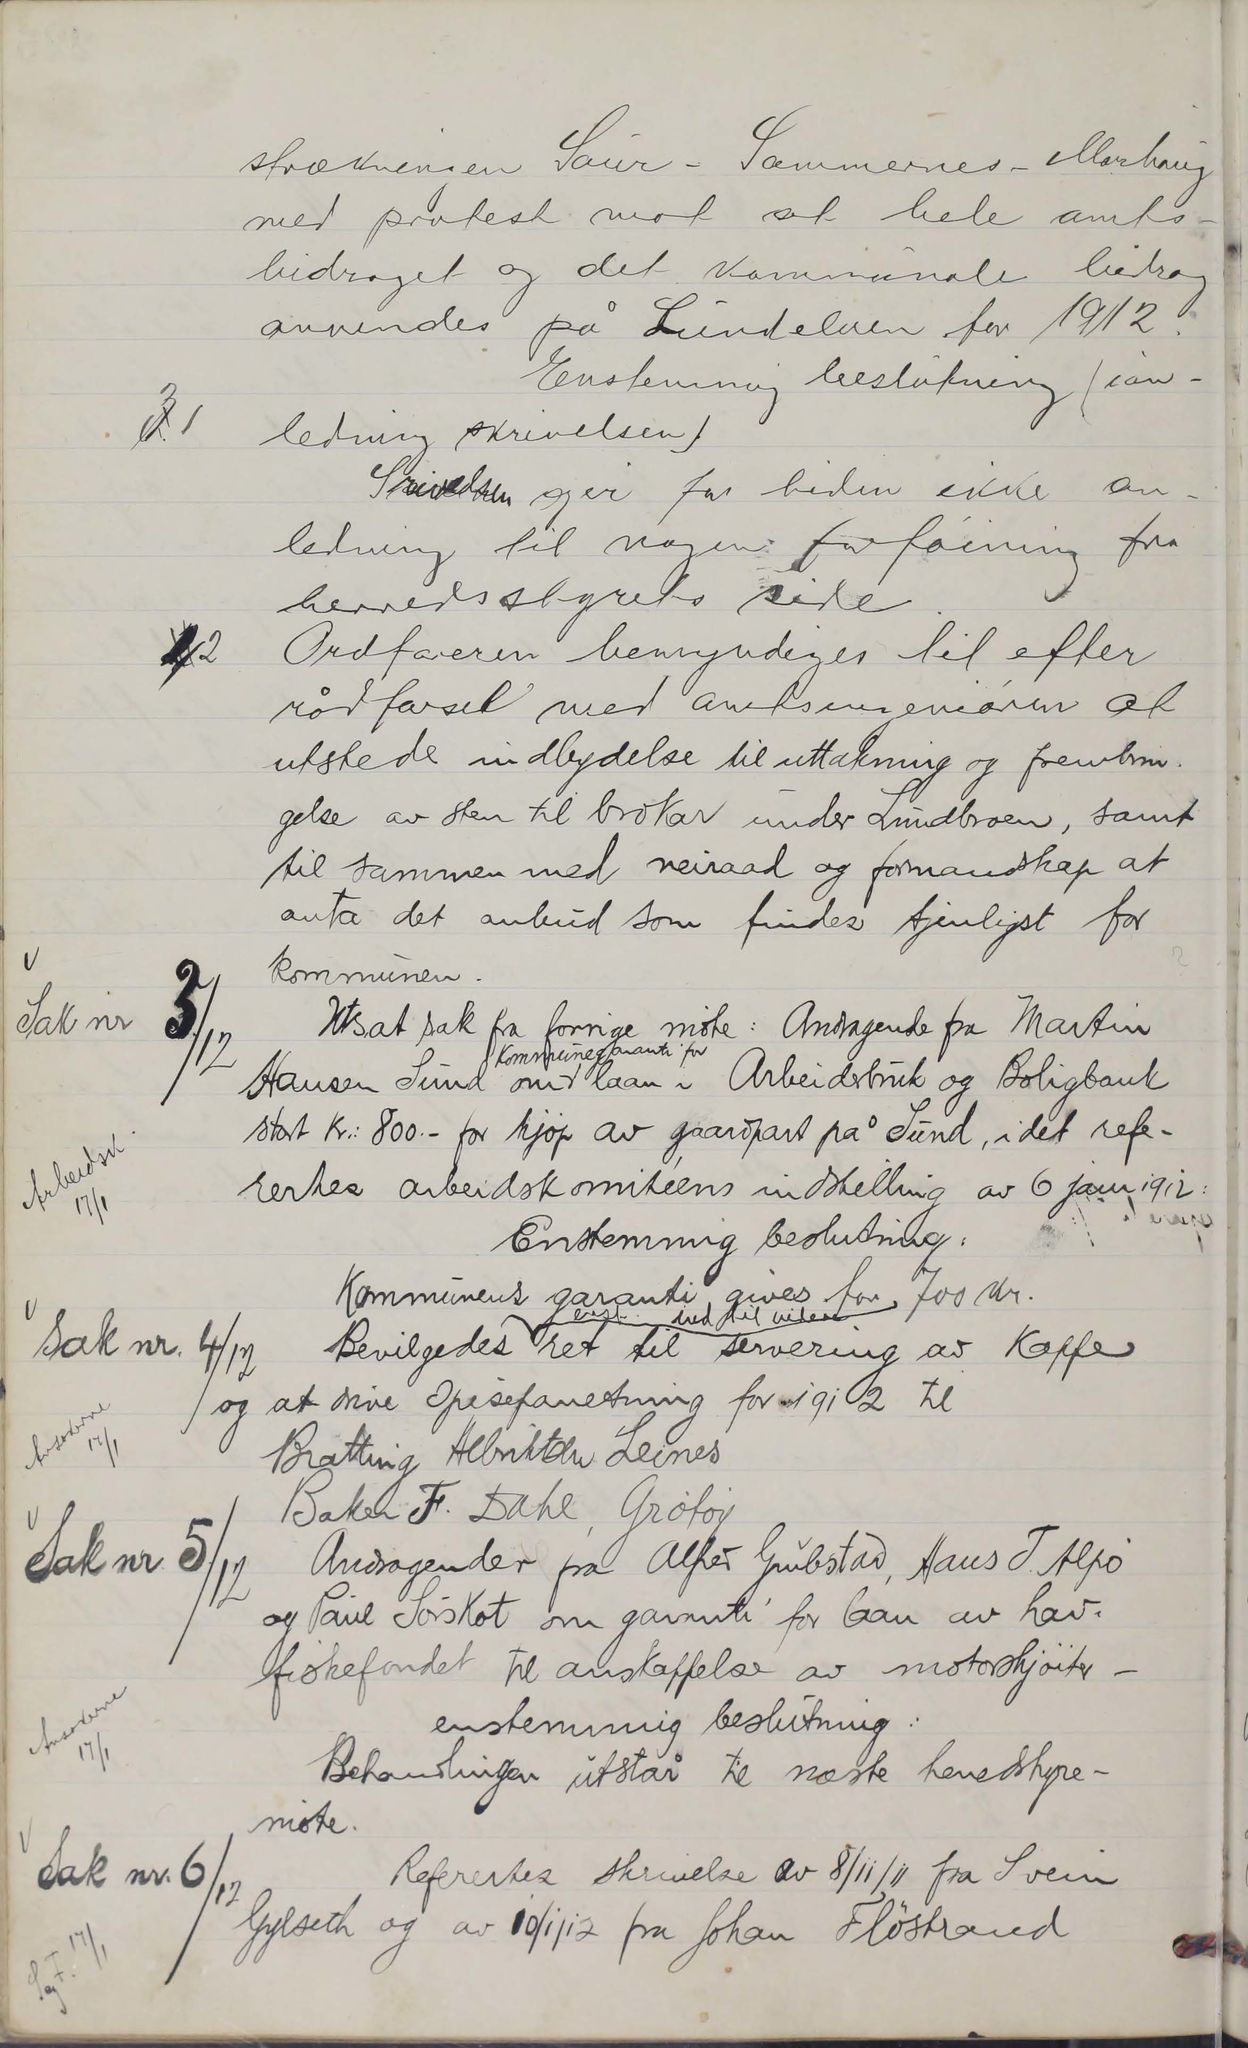 strækningen Saur - Sommernes - Morhaug
med protest mot at hele amts-
bidraget og det kommunale bidrag
anvendes på Lundelven for 1912.
Enstemmig beslutning (ian-
1 ledning skrivelsen)
Srivelsen gir for tiden ikke an-
ledning til nogen forföining fra
herredsstyrets side.
2 Ordføreren bemyndiges til efter
rådførsel med amtsingeniören at
utstede indbydelse til uttakning og frembrin-
gelse av sten til brokar under Lundbroen, samt
til sammen med veiraad og formandskap at
anta det anbud som findes tjenligst for
kommunen.
V
Sak nr 3/12 Utsat sak fra forrige møte: Andragende fra Martin
Hansen Sund om kommunegaranti for laan i Arbeidsbruk og Boligbank
stort kr.: 800.- for kjøp av gaardpart på Sund, idet refe-
Arbeidsk. 17/1
rertes arbeidskomitéens indstilling av 6 jan 1912:
Enstemmig beslutning:
Kommunens garanti gives for 700 kr.
V
enst. ind til videre
Sak nr. 4/12 Bevilgedes ret til servering av Kaffe
og at drive Spiseforretning for 1912 til
Ansøkerne 17/1
Bratting Albriktsen Leines
Baker F. Dahl, Grötöy
V
Sak nr 5/12 Andragender fra Alfred Grubstad, Hans T. Alpö
og Paul Sörskot om garanti for laan av hav-
fiskefondet til anskaffelse av motorskjöiter -
enstemmig beslutning:
Ansøkerne 17/1
Behandlingen utstår til næste herredstyre-
møte.
V
Sak nr. 6/12 Refertes skrivelse av 8/11/11 fra Svein
Gylseth og av 10/1/12 fra Johan Flöstrand
17/1